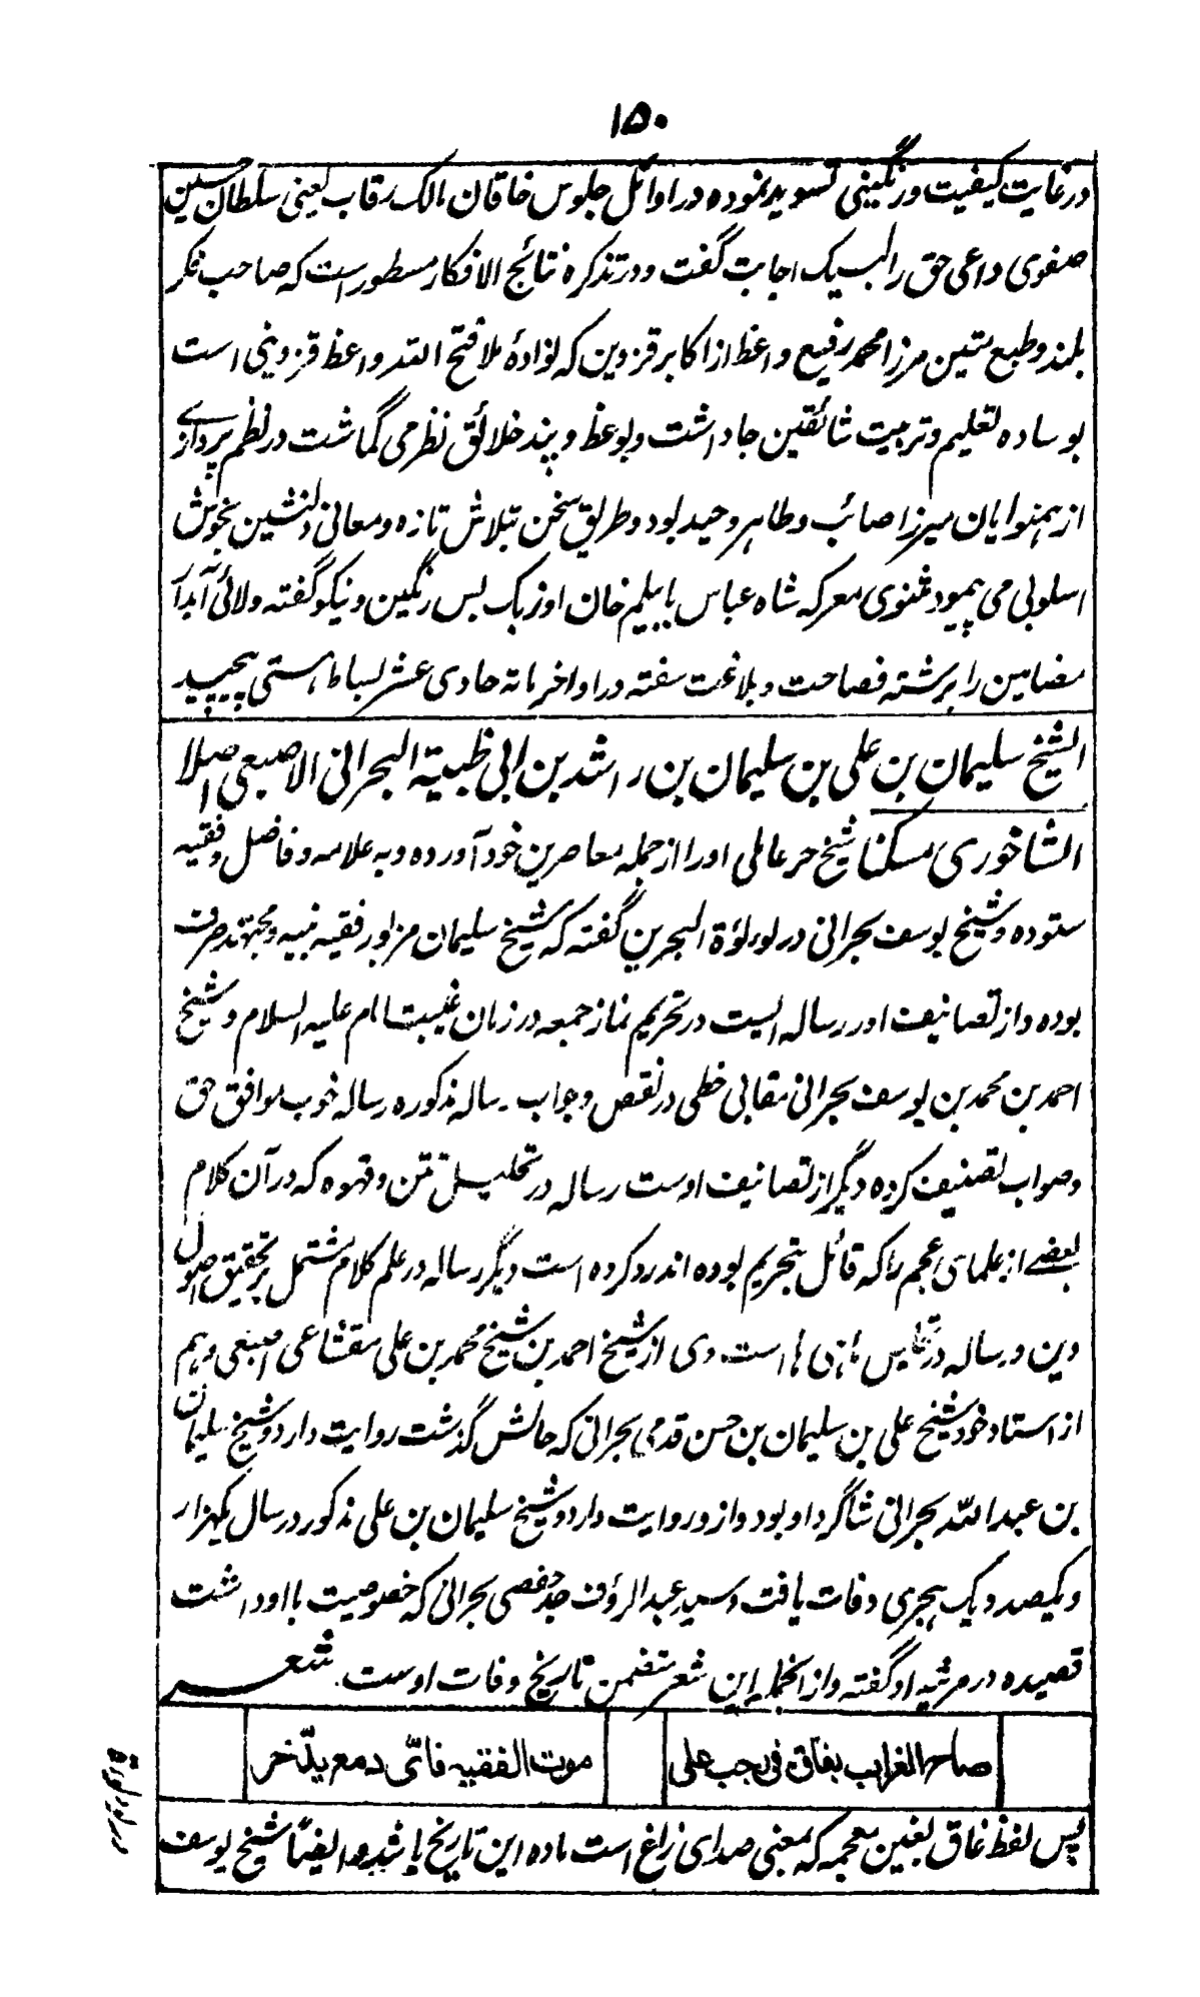 ۱۵۰
در غایت کیفیت و رنگینی تسوید نموده در اوائل جلوس خاقان مالک رقاب یعنی سلطان حسین
صفوی داعی حق را لبیک اجابت گفت و در تذکره نتائج الافکار مسطور است که صاحب فکر
بلند و طبع متین مرزا محمد رفیع واعظ از اکابر قزوین که نوادهٔ ملا فتح الله واعظ قزوینی است
بوساده تعلیم و تربیت شائقین جا داشت و بوعظ و پند خلائق نظر می گماشت در نظم پردازے
از همنوایان میرزا صائب و طاهر وحید بود و طریق سخن بتلاش تازه و معانی دلنشین بخوش
اسلوبی می پیمود مثنوی معرکه شاه عباس با ایلیم خان اوزبک بس رنگین و نیکو گفته و لالئ آبدار
مضامین را برشته فصاحت و بلاغت سفته در اواخر مائة حادی عشر بساط هستی پیچید
الشیخ سلیمان بن علی بن سلیمان بن راشد بن ابی ظبیة البحرانی الاصبعی اصلا
الشاخوری مسکنا شیخ حر عاملی او را از جمله معاصرین خود آورده و به علامه و فاضل و فقیه
ستوده و شیخ یوسف بحرانی در لوءلؤة البحرین گفته که شیخ سلیمان مزبور فقیه نبیه و مجتهد صرف
بوده و از تصانیف او رساله ایست در تحریم نماز جمعه در زمان غیبت امام علیه السلام و شیخ
احمد بن محمد بن یوسف بحرانی مقابی خطی در نقص و جواب رساله مذکوره رساله خوب موافق حق
و صواب تصنیف کرده دیگر از تصانیف اوست رساله در تحلیل تتن و قهوه که در آن کلام
بعضے از علمای عجم را که قائل بتحریم بوده اند رد کرده است دیگر رساله در علم کلام مشتمل بر تحقیق اصول
دین و رساله در است وی از شیخ احمد بن شیخ محمد بن علی مقشاعی اصبعی و هم
از استاد خود شیخ علی بن سلیمان بن حسن قدمی بحرانی که حالش گذشت روایت دارد و شیخ سلیمان
بن عبد الله بحرانی شاگرد او بود و ازو روایت دارد و شیخ سلیمان بن علی مذکور در سال یکهزار
و یکصد و یک هجری وفات یافت و سید عبد الرؤف جد حفصی بحرانی که خصوصیت با او داشت
قصیده در مرثیه او گفته و از انجمله این شعر متضمن تاریخ وفات اوست . شعر
صاح الغراب بغاق فی رجب علی
موت الفقیه فانی دمع یدّخر
پس لفظ غاق بغین معجمه که بمعنی صدای زاغ است ماده این تاریخ باشد و ایضاً شیخ یوسف